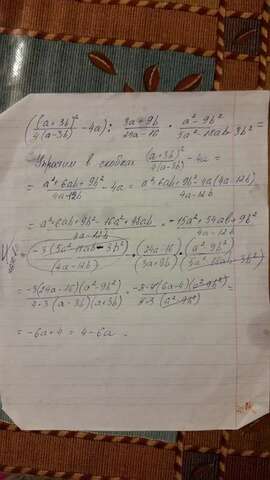 ((a+3b)²/4(a-3b) - 4a) : 3a+9b/24a-16 · a²-9b²/5a²-18ab-3b² =
Упростим в скобках (a+3b)²/4(a-3b) - 4a =
= a²+6ab+9b²/4a-12b - 4a = a²+6ab+9b²-4a(4a-12b)/4a-12b
= a²+6ab+9b²-16a²+48ab/4a-12b = -15a²+54ab+9b²/4a-12b
-3(5a²-18ab-3b²)/(4a-12b) · (24a-16)/(3a+9b) · (a²-9b²)/(5a²-18ab-3b²)
= -3(24a-16)(a²-9b²)/4·3(a-3b)(a+3b) = -3·4(6a-4)(a²-9b²)/4·3(a²-9b²) =
= -6a+4 = 4-6a.